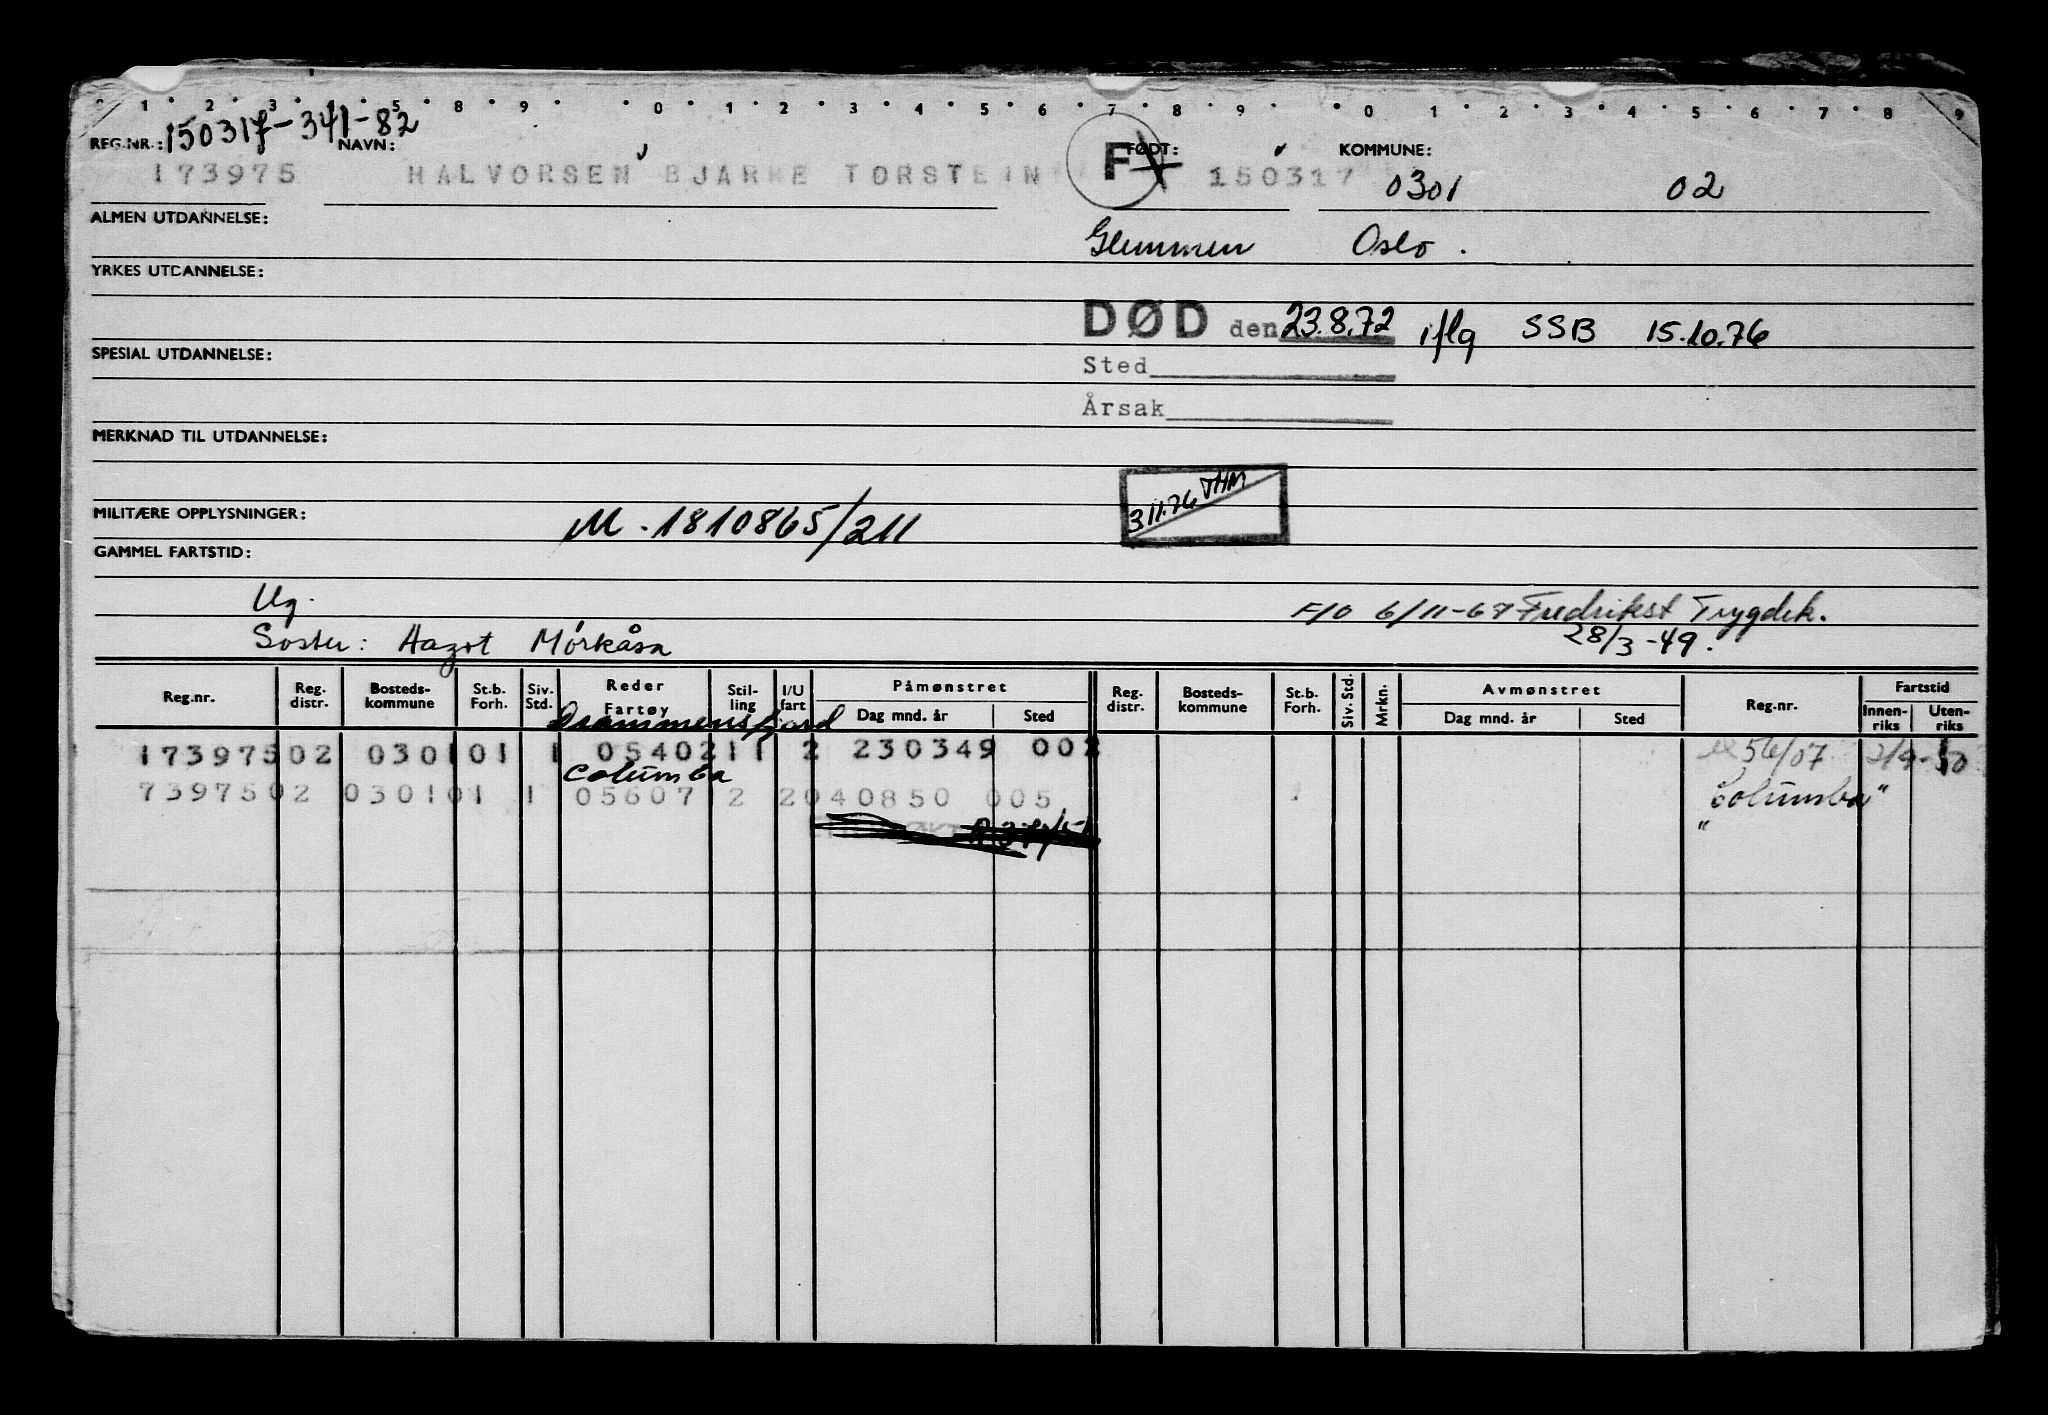 1 2 3 4 5 8 9 0 1 2 3 4 5 6 7 8 9 0 1 2 3 4 5 6 7 8 9
REG.NR.: 150317-341-82 NAVN: FØDT: KOMMUNE:
173975 HALVORSEN BJARNE TORSTEIN F 150317 0301 02
ALMEN UTDANNELSE:
Glemmen Oslo.
YRKES UTDANNELSE:
DØD den 23.8.72 iflg SSB 15.10.76
SPESIAL UTDANNELSE:
Sted
Årsak
MERKNAD TIL UTDANNELSE:
3.11.76 THM
MILITÆRE OPPLYSNINGER: M.1810865/211
GAMMEL FARTSTID:
Ug. F/O 6/11-67 Fredrikst Trygdek.
Søster: Aagot Mørkåsa 28/3-49.
Reg.nr. Reg. distr. Bosteds-kommune St.b. Forh. Siv. Std. Reder Fartøy Stil-ling I/U fart Påmønstret Dag mnd. år Sted Reg. distr. Bosteds-kommune St.b. Forh. Siv. Std. Mrkn. Avmønstret Dag mnd. år Sted Reg.nr. Fartstid Innen-riks Uten-riks
Drammensfjord
173975 02 0301 01 1 05402 11 2 230349 002 56/07 2/9-50
Columba
73975 02 0301 01 1 05607 12 2 040850 005 "Columba"